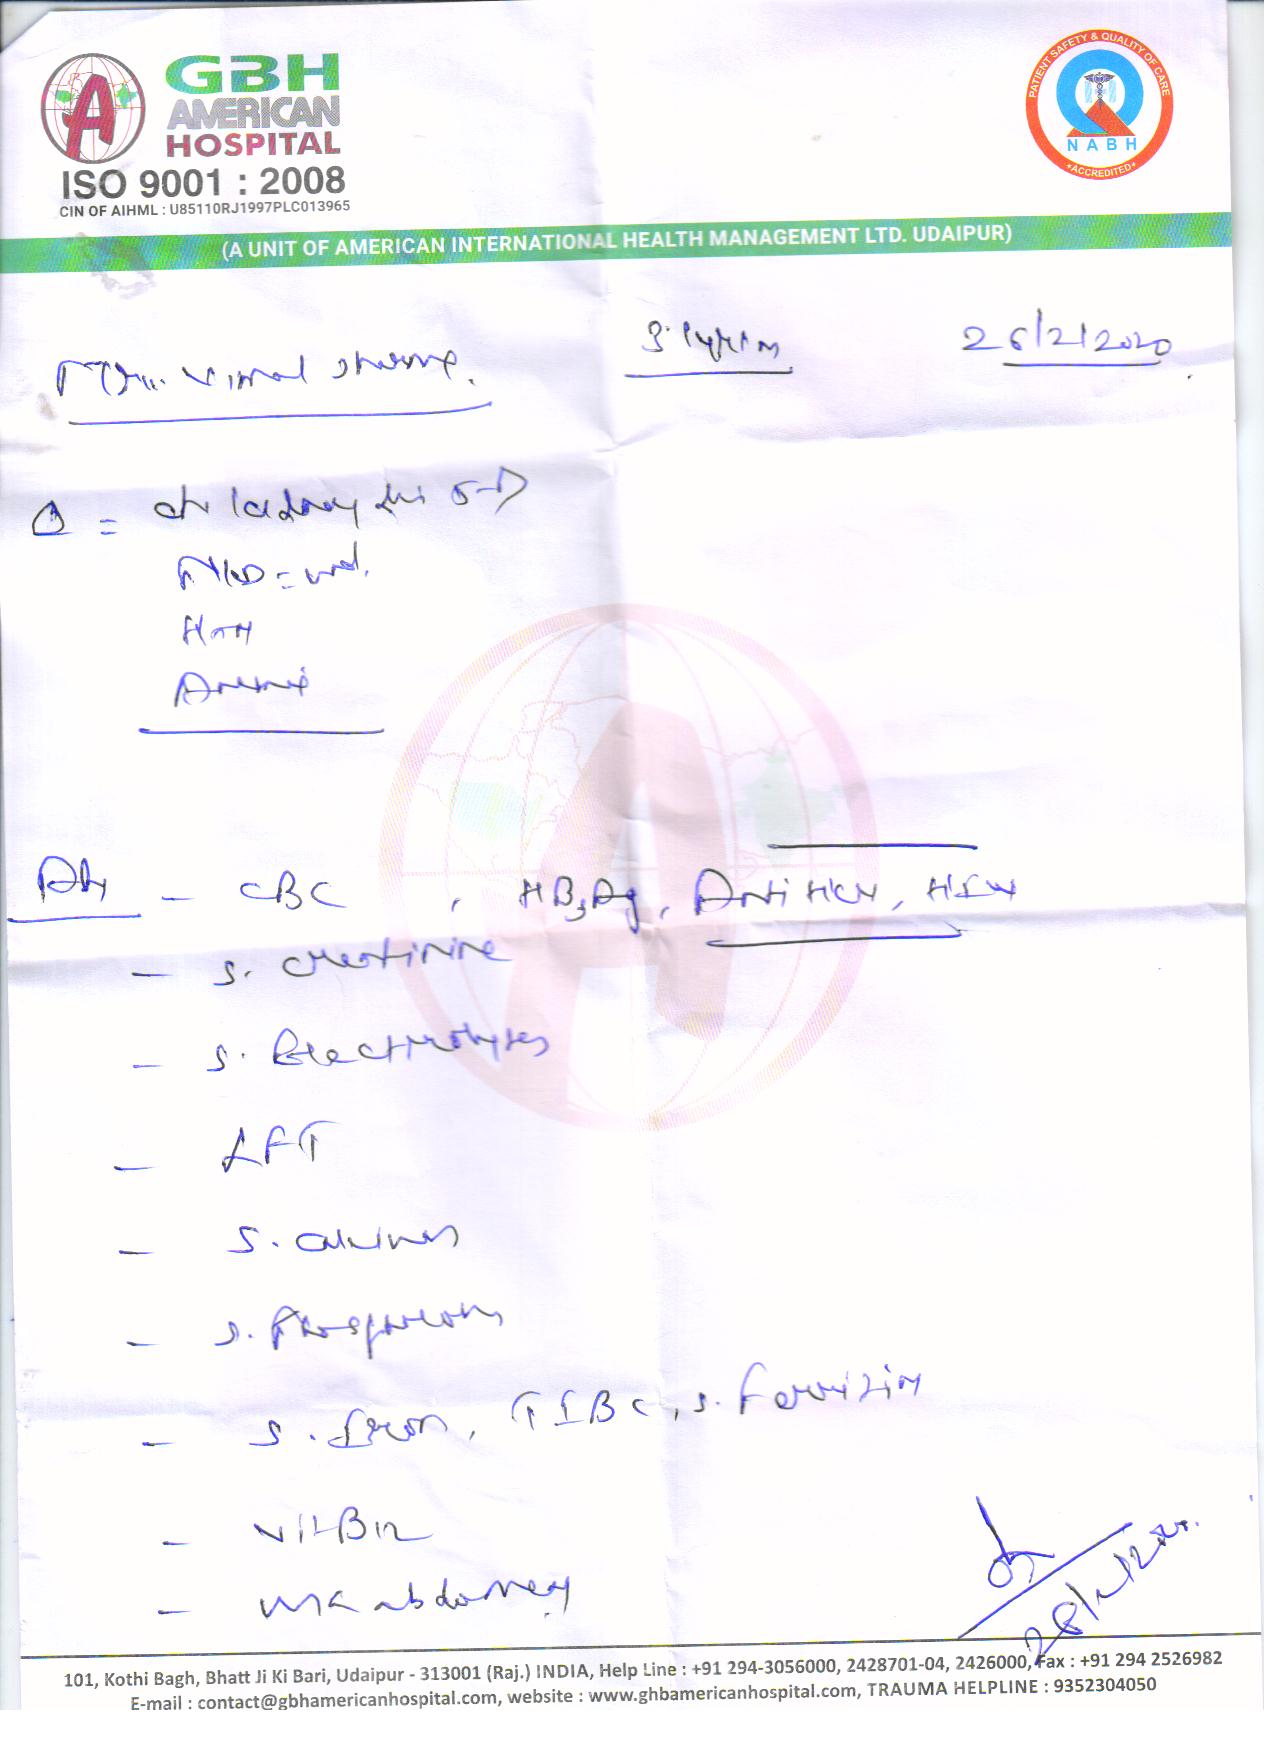 GBH
AMERICAN
HOSPITAL
ISO 9001 : 2008
CIN OF AIHML : U85110RJ1997PLC013965
PATIENT SAFETY & QUALITY OF CARE
NABH
ACCREDITED
(A UNIT OF AMERICAN INTERNATIONAL HEALTH MANAGEMENT LTD. UDAIPUR)
Vimal Sharma. 26/2/2020
Δ = Kidney 5-D
HTN
Anemia
Adv - CBC , HBsAg, Anti HCV, HIV
- S. Creatinine
- S. Electrolytes
- LFT
- S. Calcium
- S. Phosphorous
- S. Iron, TIBC, S. Ferritin
- Vit B12
- USG abdomen
101, Kothi Bagh, Bhatt Ji Ki Bari, Udaipur - 313001 (Raj.) INDIA, Help Line : +91 294-3056000, 2428701-04, 2426000, Fax : +91 294 2526982
E-mail : contact@gbhamericanhospital.com, website : www.ghbamericanhospital.com, TRAUMA HELPLINE : 9352304050